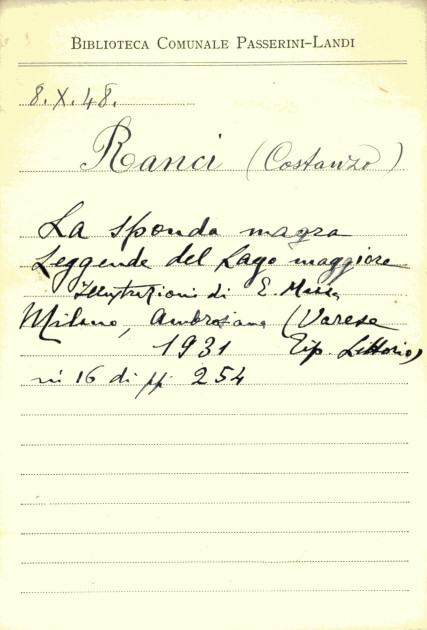 BIBLIOTECA COMUNALE PASSERINI-LANDI
8.X.48.
Ranci (Costanzo)
La sponda magra
Leggende del Lago maggiore
Illustrazioni di E.
Milano, Ambrosiana (Varese
1931 Tip. Littorio)
in 16 di pp 254